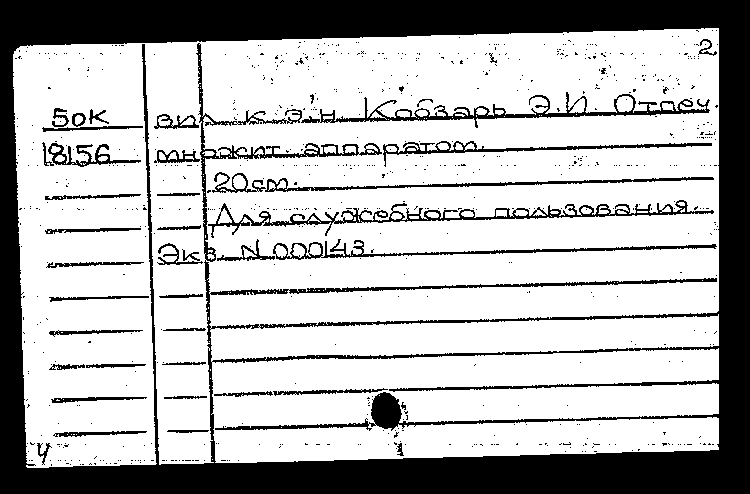 2
50К вил к.э.н. Кобзарь Э.И. Отпеч.
18156 множит. аппаратом.
20см.
Для служебного пользования.
Экз. N 000143.
4